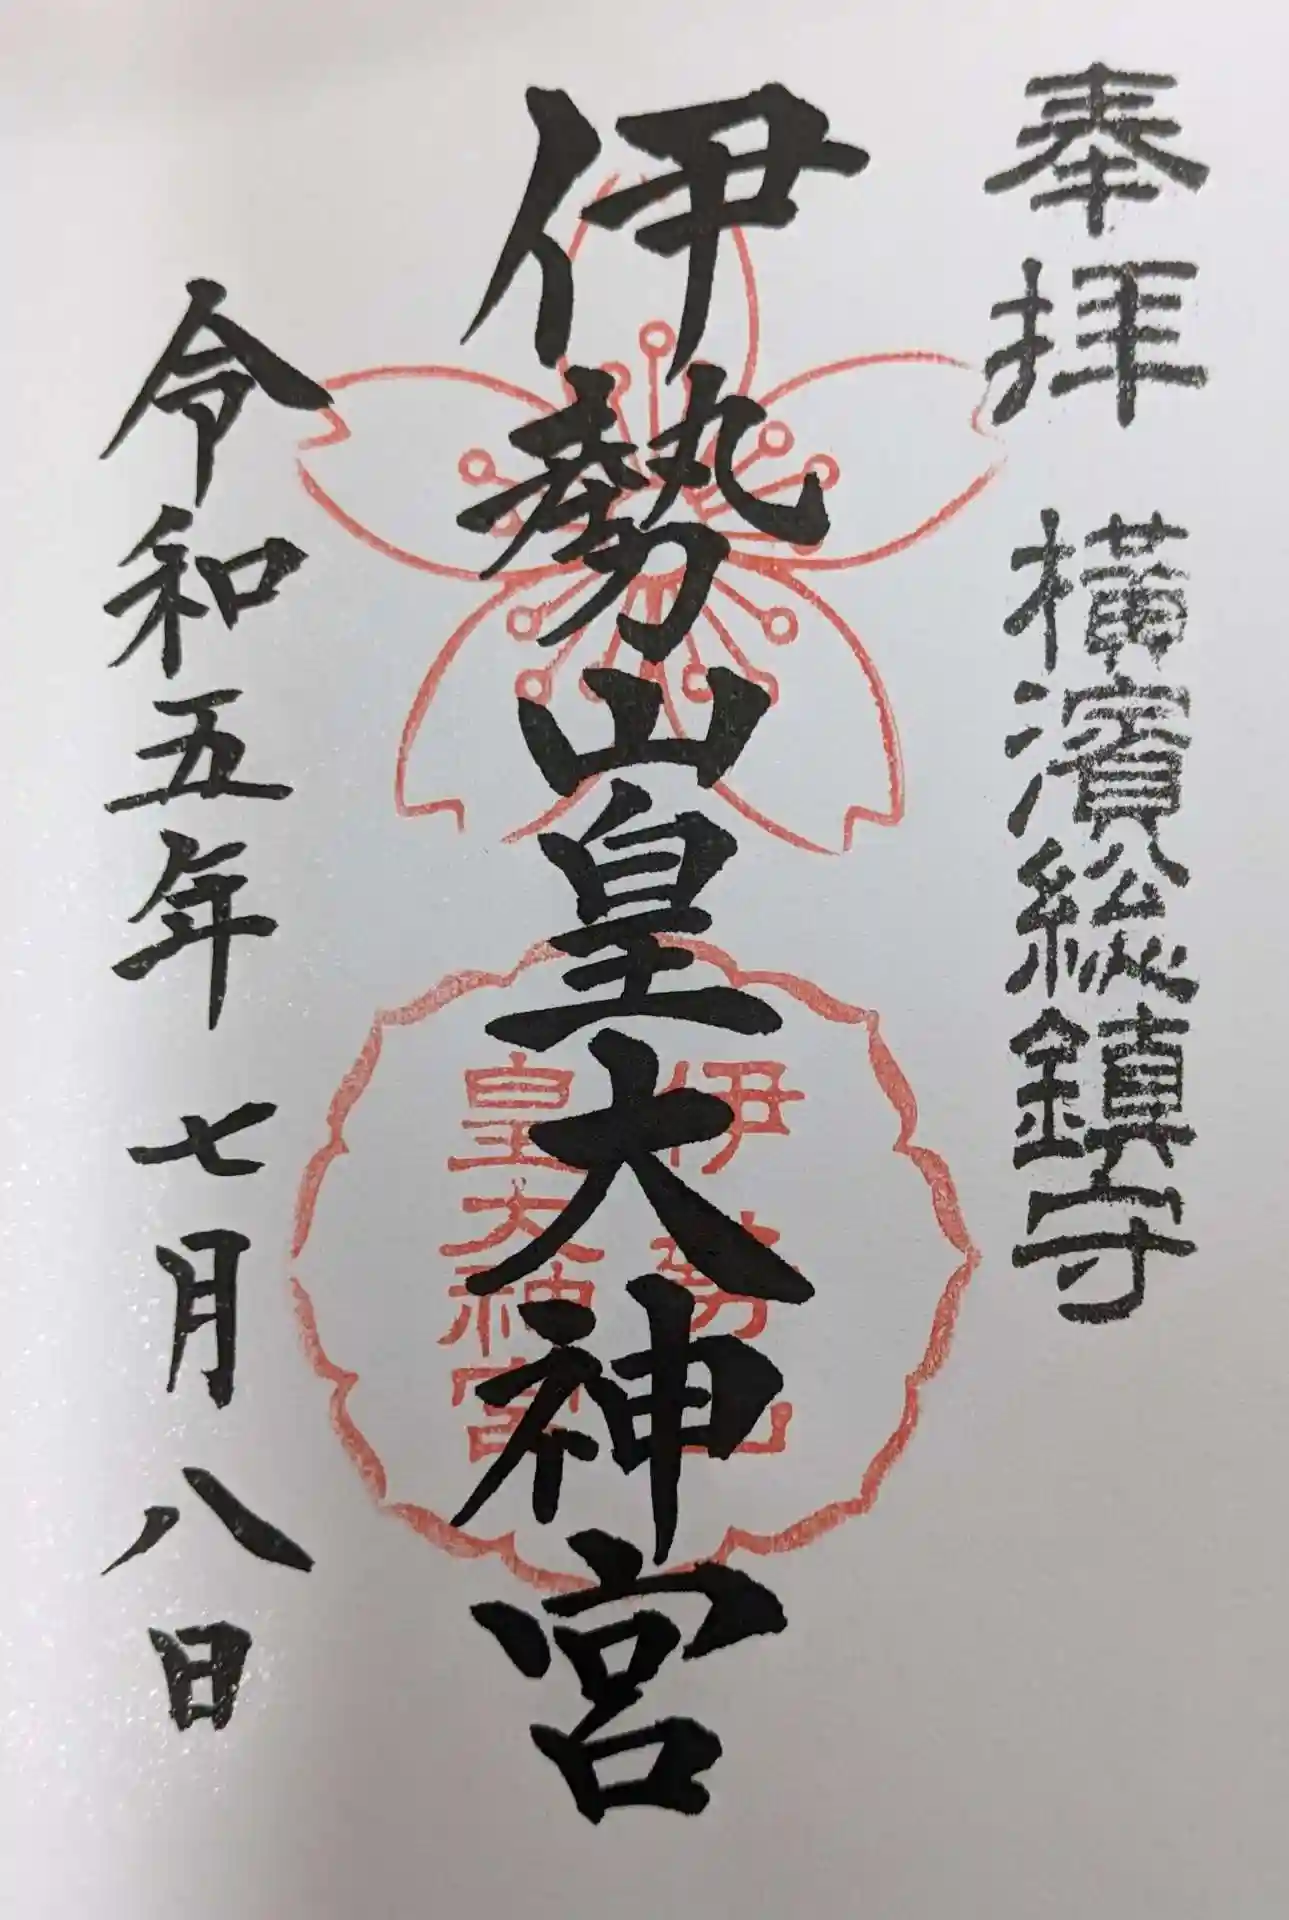 奉拝 横濱総鎮守
伊勢山皇大神宮
伊勢山
皇大神宮
令和五年 七月八日